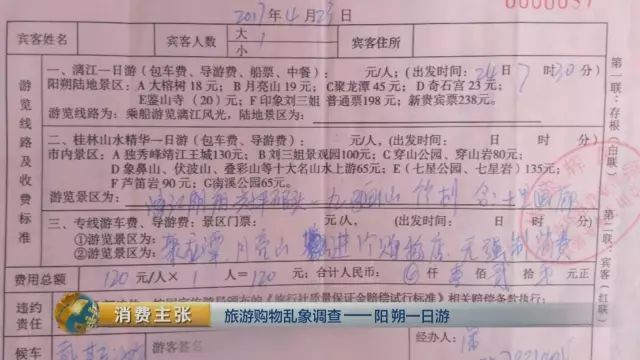 0000057
2017年4月23日
宾客姓名 宾客人数 大 1 小 宾客住所
游览线路及收费标准
一、漓江一日游（包车费、导游费、船票、中餐）： 元/人；（出发时间：24日7时30分）
阳朔陆地景区：A 大榕树18元；B月亮山19元；C聚龙潭45元；D奇石宫23元；
E鉴山寺（20）元；F印象刘三姐 普通票198元；新贵宾238元。
游览线路为：乘船游览漓江风光，陆地景区为：
二、桂林山水精华一日游（包车费、导游费）： 元/人；（出发时间： 日 时 分）
市内景区：A 独秀峰靖江王城130元；B刘三姐景观园100元；C穿山公园、穿山岩80元；
D象鼻山、伏波山、叠彩山等十大名山水上游65元；E（七星公园、七星岩）135元；
F芦笛岩90元；G南溪公园65元。
游览景区为： 九马画山 竹刹 含十里画廊
三、专线游车费、导游费；景区门票： 元/人；（出发时间： 日 时 分）
①游览景区为：聚龙潭、月亮山 进个购物店，无强制消费
②游览景区为：
费用总额 120元/人×1人=120元；合计人民币： 仟 壹佰 贰拾 元正
违约责任
《旅行社质量保证金赔偿试行标准》相关赔偿条款执行；
候车
游客签名
经办人：
第一联：存根（白联）
第二联：宾客（红联）
消费主张 旅游购物乱象调查——阳朔一日游